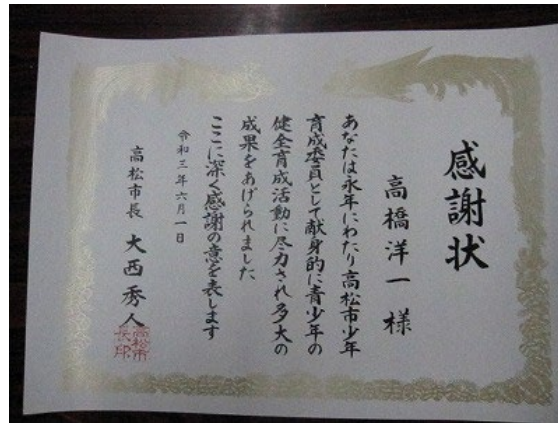 感謝状
高橋洋一様
あなたは永年にわたり高松市少年
育成委員として献身的に青少年の
健全育成活動に尽力され多大の
成果をあげられました
ここに深く感謝の意を表します
令和三年六月一日
高松市長 大西秀人
高松市長印